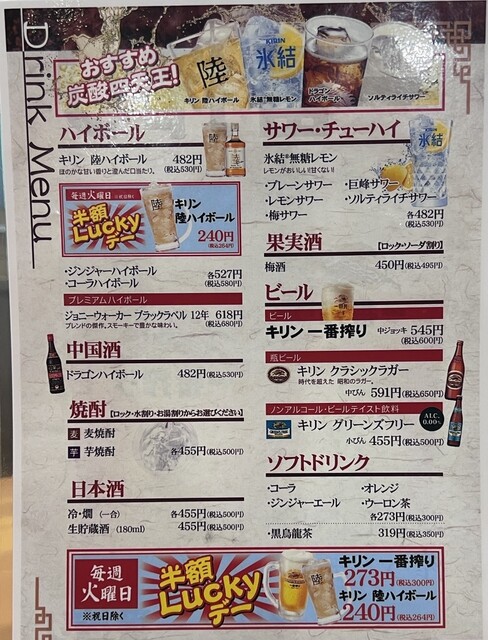 Drink Menu
おすすめ
炭酸四天王!
陸
KIRIN
氷結
キリン 陸ハイボール
氷結®無糖レモン
ドラゴン
ハイボール
ソルティライチサワー
ハイボール
キリン 陸ハイボール 482円(税込530円)
ほのかな甘い香りと澄んだ口当たり。
毎週火曜日 ※祝日除く
半額
Luckyデー
キリン
陸ハイボール
240円
(税込264円)
・ジンジャーハイボール
・コーラハイボール
各527円
(税込580円)
プレミアムハイボール
ジョニーウォーカー ブラックラベル 12年 618円
ブレンドの傑作。スモーキーで豊かな味わい。 (税込680円)
中国酒
ドラゴンハイボール 482円(税込530円)
焼酎 【ロック・水割り・お湯割りからお選びください】
麦 麦焼酎
芋 芋焼酎
各455円(税込500円)
日本酒
冷・燗 (一合) 各455円(税込500円)
生貯蔵酒 (180ml) 455円(税込500円)
サワー・チューハイ
氷結®無糖レモン
レモンがおいしい!甘くない!
・プレーンサワー ・巨峰サワー
・レモンサワー ・ソルティライチサワー
・梅サワー
各482円
(税込530円)
氷結
果実酒 【ロック・ソーダ割り】
梅酒 450円(税込495円)
ビール
ビール
キリン 一番搾り 中ジョッキ 545円
(税込600円)
瓶ビール
キリン クラシックラガー
時代を超えた 昭和のラガー。
中びん 591円(税込650円)
ノンアルコール・ビールテイスト飲料
ALC.
0.00%
キリン グリーンズフリー
小びん 455円(税込500円)
ソフトドリンク
・コーラ ・オレンジ
・ジンジャーエール ・ウーロン茶
各273円(税込300円)
・黒烏龍茶 319円(税込350円)
毎週
火曜日
※祝日除く
半額
Luckyデー
キリン 一番搾り
273円(税込300円)
キリン 陸ハイボール
240円(税込264円)